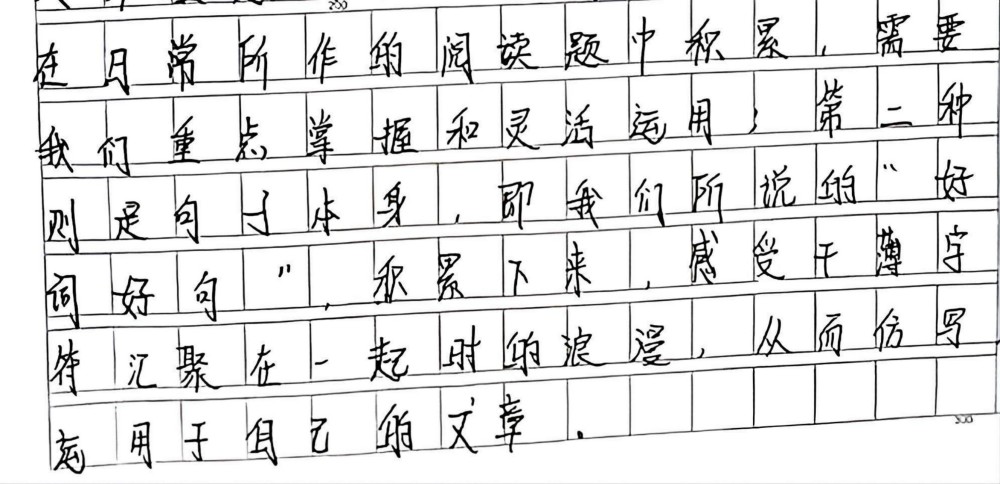 200
在日常所作的阅读题中积累，需要
我们重点掌握和灵活运用；第二种
则是句子本身，即我们所说的“好
词好句”，积累下来，感受干薄字
符汇聚在一起时的浪漫，从而仿写，
运用于自己的文章.
300